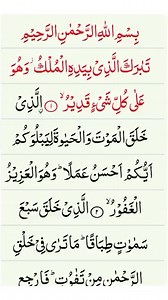 بِسْمِ اللهِ الرَّحْمٰنِ الرَّحِيْمِ
تَبٰرَكَ الَّذِيْ بِيَدِهِ الْمُلْكُ ۫ وَهُوَ
عَلٰى كُلِّ شَيْءٍ قَدِيْرُۨ ۙ﴿۱﴾ الَّذِيْ
خَلَقَ الْمَوْتَ وَالْحَيٰوةَ لِيَبْلُوَكُمْ
اَيُّكُمْ اَحْسَنُ عَمَلًا ؕ وَهُوَ الْعَزِيْزُ
الْغَفُوْرُ ۙ﴿۲﴾ الَّذِيْ خَلَقَ سَبْعَ
سَمٰوٰتٍ طِبَاقًا ؕ مَا تَرٰى فِيْ خَلْقِ
الرَّحْمٰنِ مِنْ تَفٰوُتٍ ؕ فَارْجِعِ